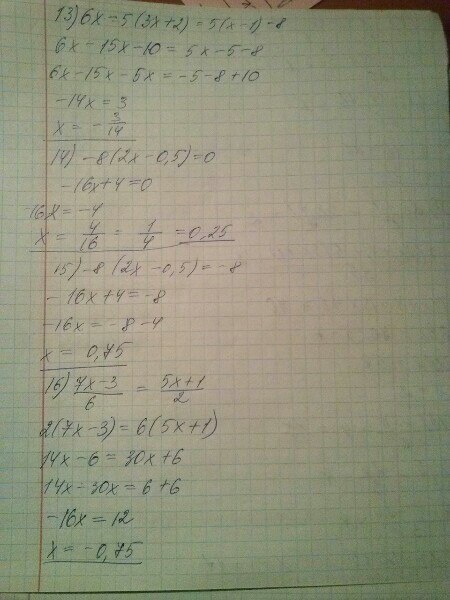 13) 6x - 5(3x+2) = 5(x-1) - 8
6x - 15x - 10 = 5x - 5 - 8
6x - 15x - 5x = -5 - 8 + 10
-14x = 3
x = - 3/14
14) -8(2x - 0,5) = 0
-16x + 4 = 0
-16x = -4
x = 4/16 = 1/4 = 0,25
15) -8 (2x - 0,5) = -8
-16x + 4 = -8
-16x = -8 - 4
x = 0,75
16) 7x-3/6 = 5x+1/2
2(7x-3) = 6(5x+1)
14x - 6 = 30x + 6
14x - 30x = 6 + 6
-16x = 12
x = -0,75